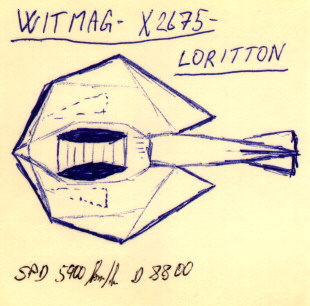 WITMAG- X2675-
LORITTON
SPD 5900 km/h D 8800